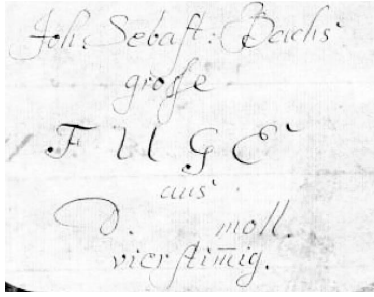 Joh. Sebast: Bachs
grosse
FUGE
aus
D. moll.
vierstim̄ig.